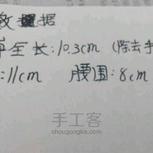 数据
全长:10.3cm(除去手
:11cm 腰围:8cm
手工客
shougongke.com